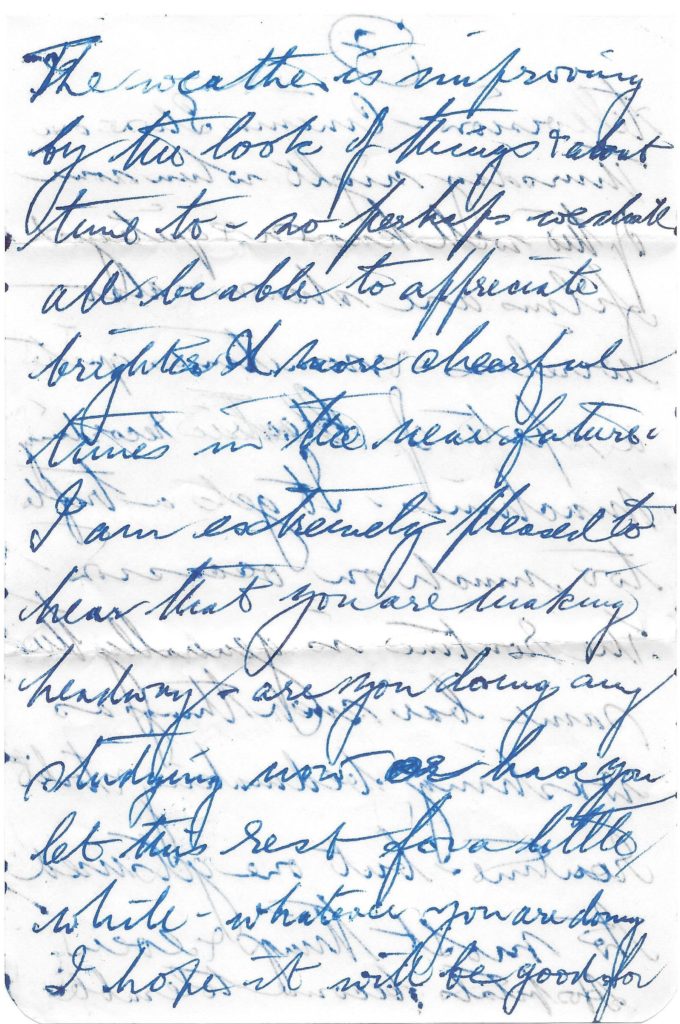 The weather is improving
by the look of things & about
time to - so perhaps we shall
all be able to appreciate
brighter & more cheerful
times in the near future.
I am extremely pleased to
hear that you are making
headway - are you doing any
studying now or have you
let this rest for a little
while - whatever you are doing
I hope it will be good for